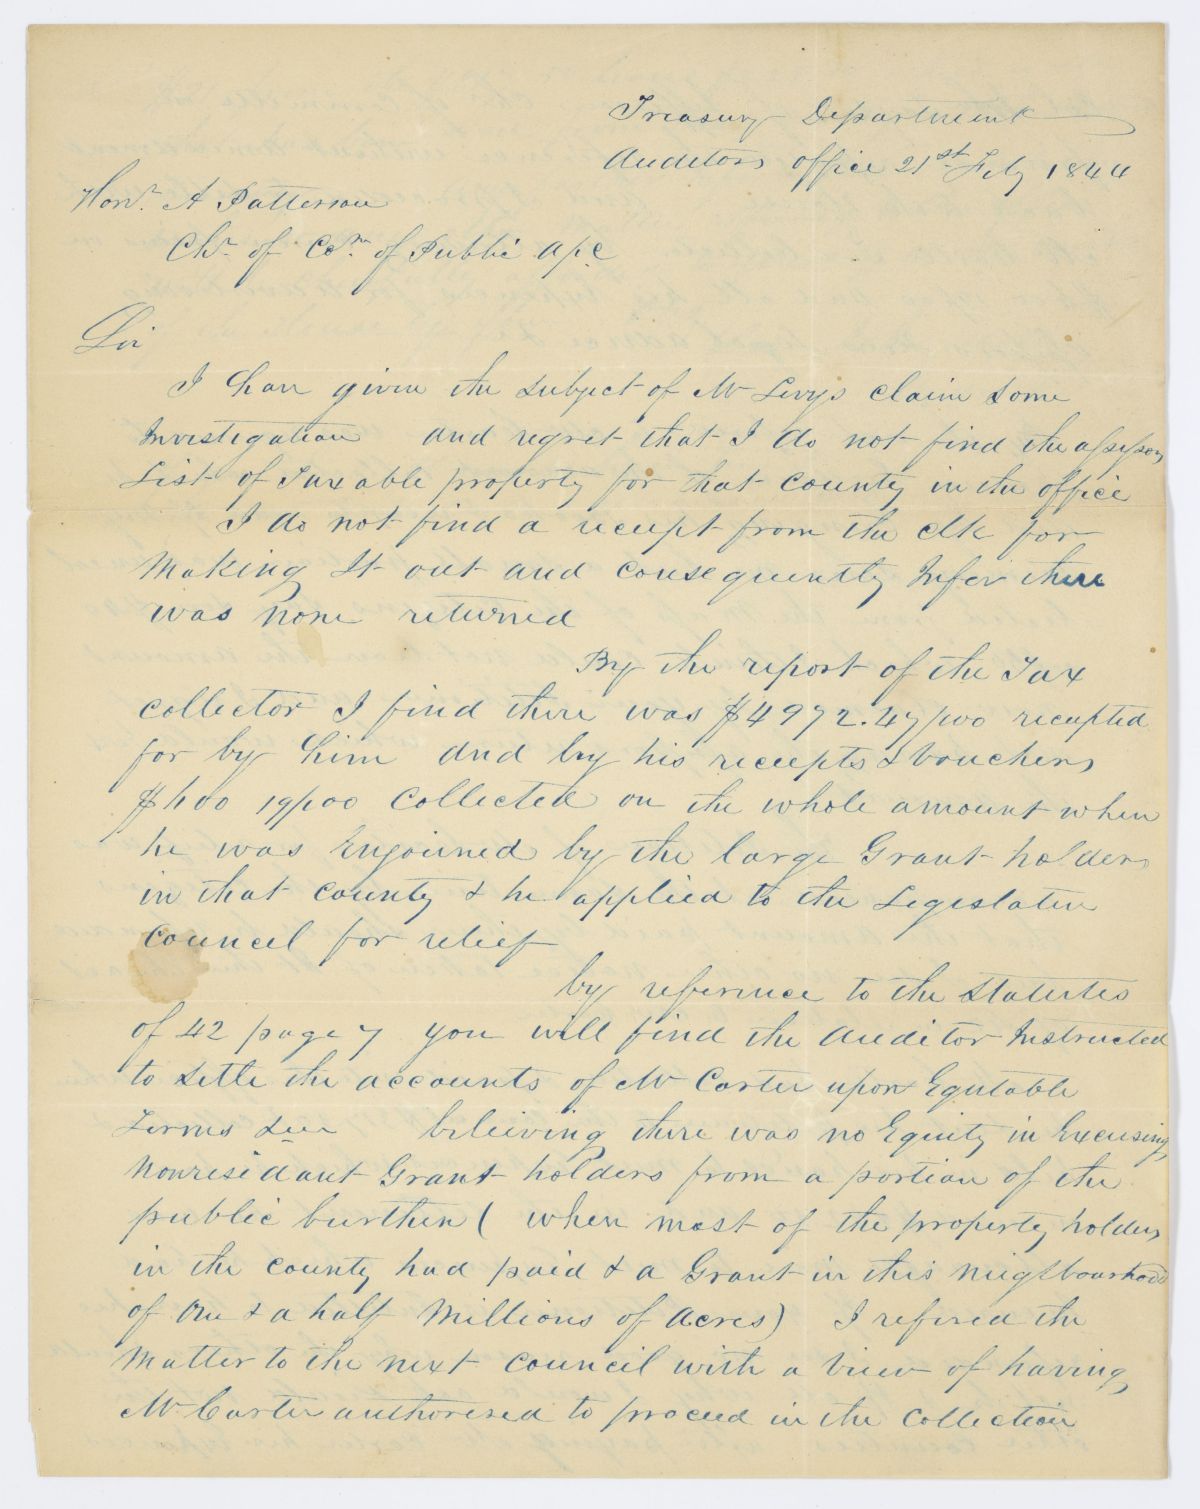 Treasury Department
Auditors office 21st Feby 1844
Honr. A Patterson
Chr. of Com. of Public apc
Sir
I have given the subject of Mr Levys claim some
Investigation and regret that I do not find the assessors
List of Taxable property for that County in the office
I do not find a receipt from the clk for
Making It out and consequently Infer there
was none returned
By the report of the Tax
collector I find there was $4972.47/100 receipted
for by him and by his receipts & vouchers
$400 19/100 Collected on the whole amount when
he was Enjoined by the large Grant holders
in that county & he applied to the Legislative
Council for relief
by reference to the Statutes
of 42 page 7 you will find the Auditor Instructed
to settle the accounts of Mr Carter upon Equitable
Terms believing there was no Equity in Excusing
Nonresidant Grant holders from a portion of the
public burthen ( when most of the property holders
in the county had paid & a Grant in this Neigbourhood
of One & a half Millions of Acres) I refered the
Matter to the next Council with a View of having
Mr Carter authorised to proceed in the Collection